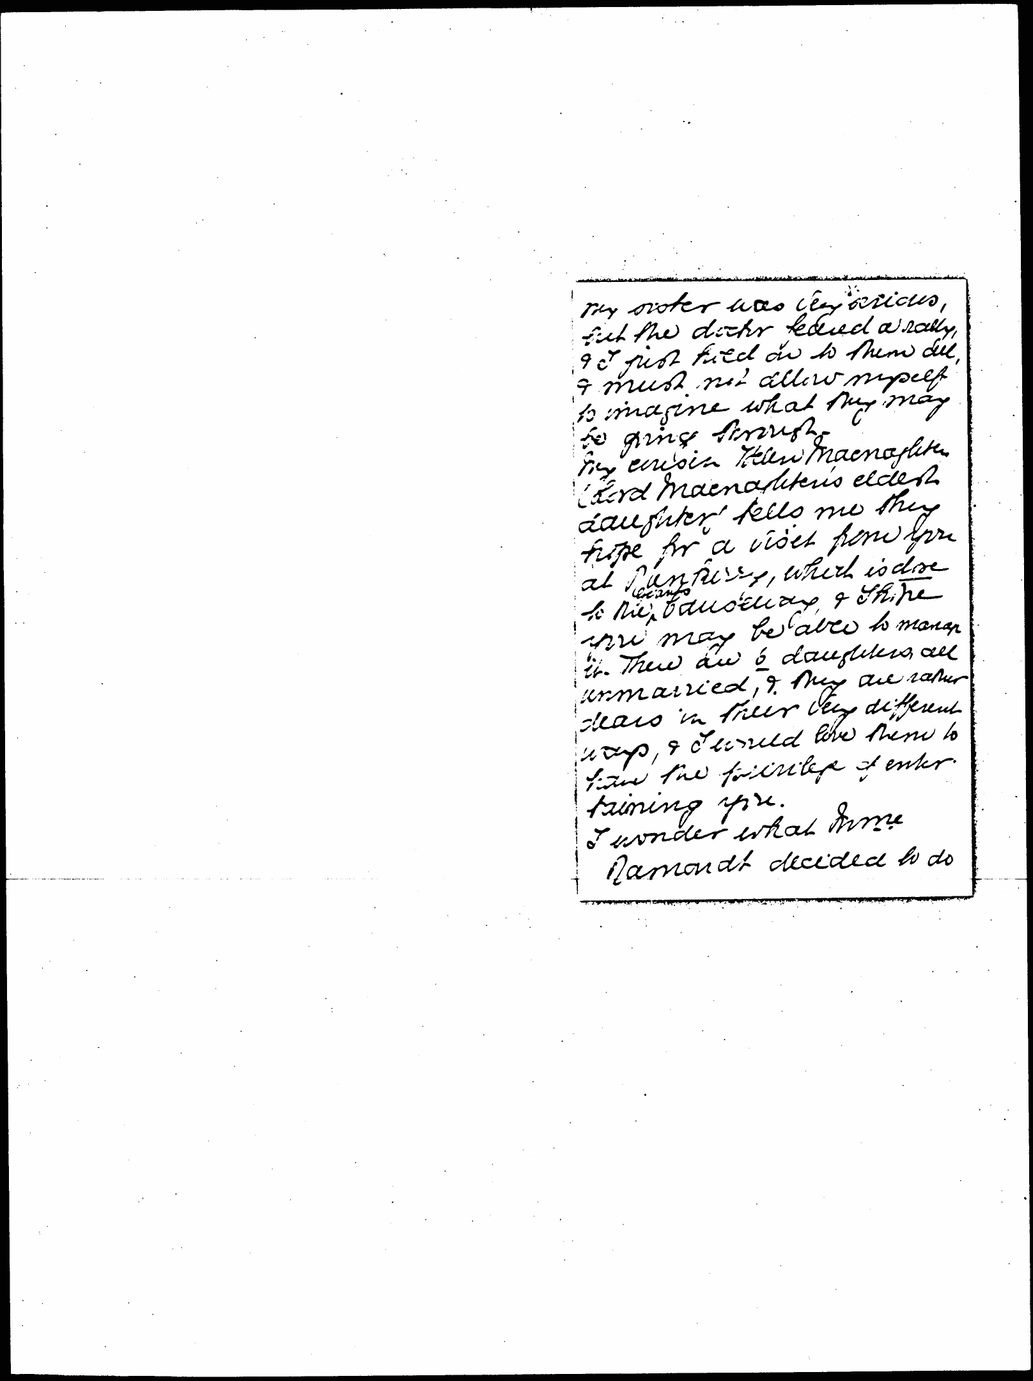 my sister was very serious,
but the doctor feared a rally,
& I just hold on to them all,
& must not allow myself
to imagine what they may
be going through.
My cousin Helen Macnaghten
(Lord Macnaghten's eldest
daughter) tells me they
hope for a visit from you
at Runkerry, which is close
to the Giants Causeway, & I hope
you may be able to manage
it. There are 6 daughters, all
unmarried, & they are rather
dears in their very different
ways, & I would love them to
have the privilege of enter-
taining you.
I wonder what Mme
Ramondt decided to do